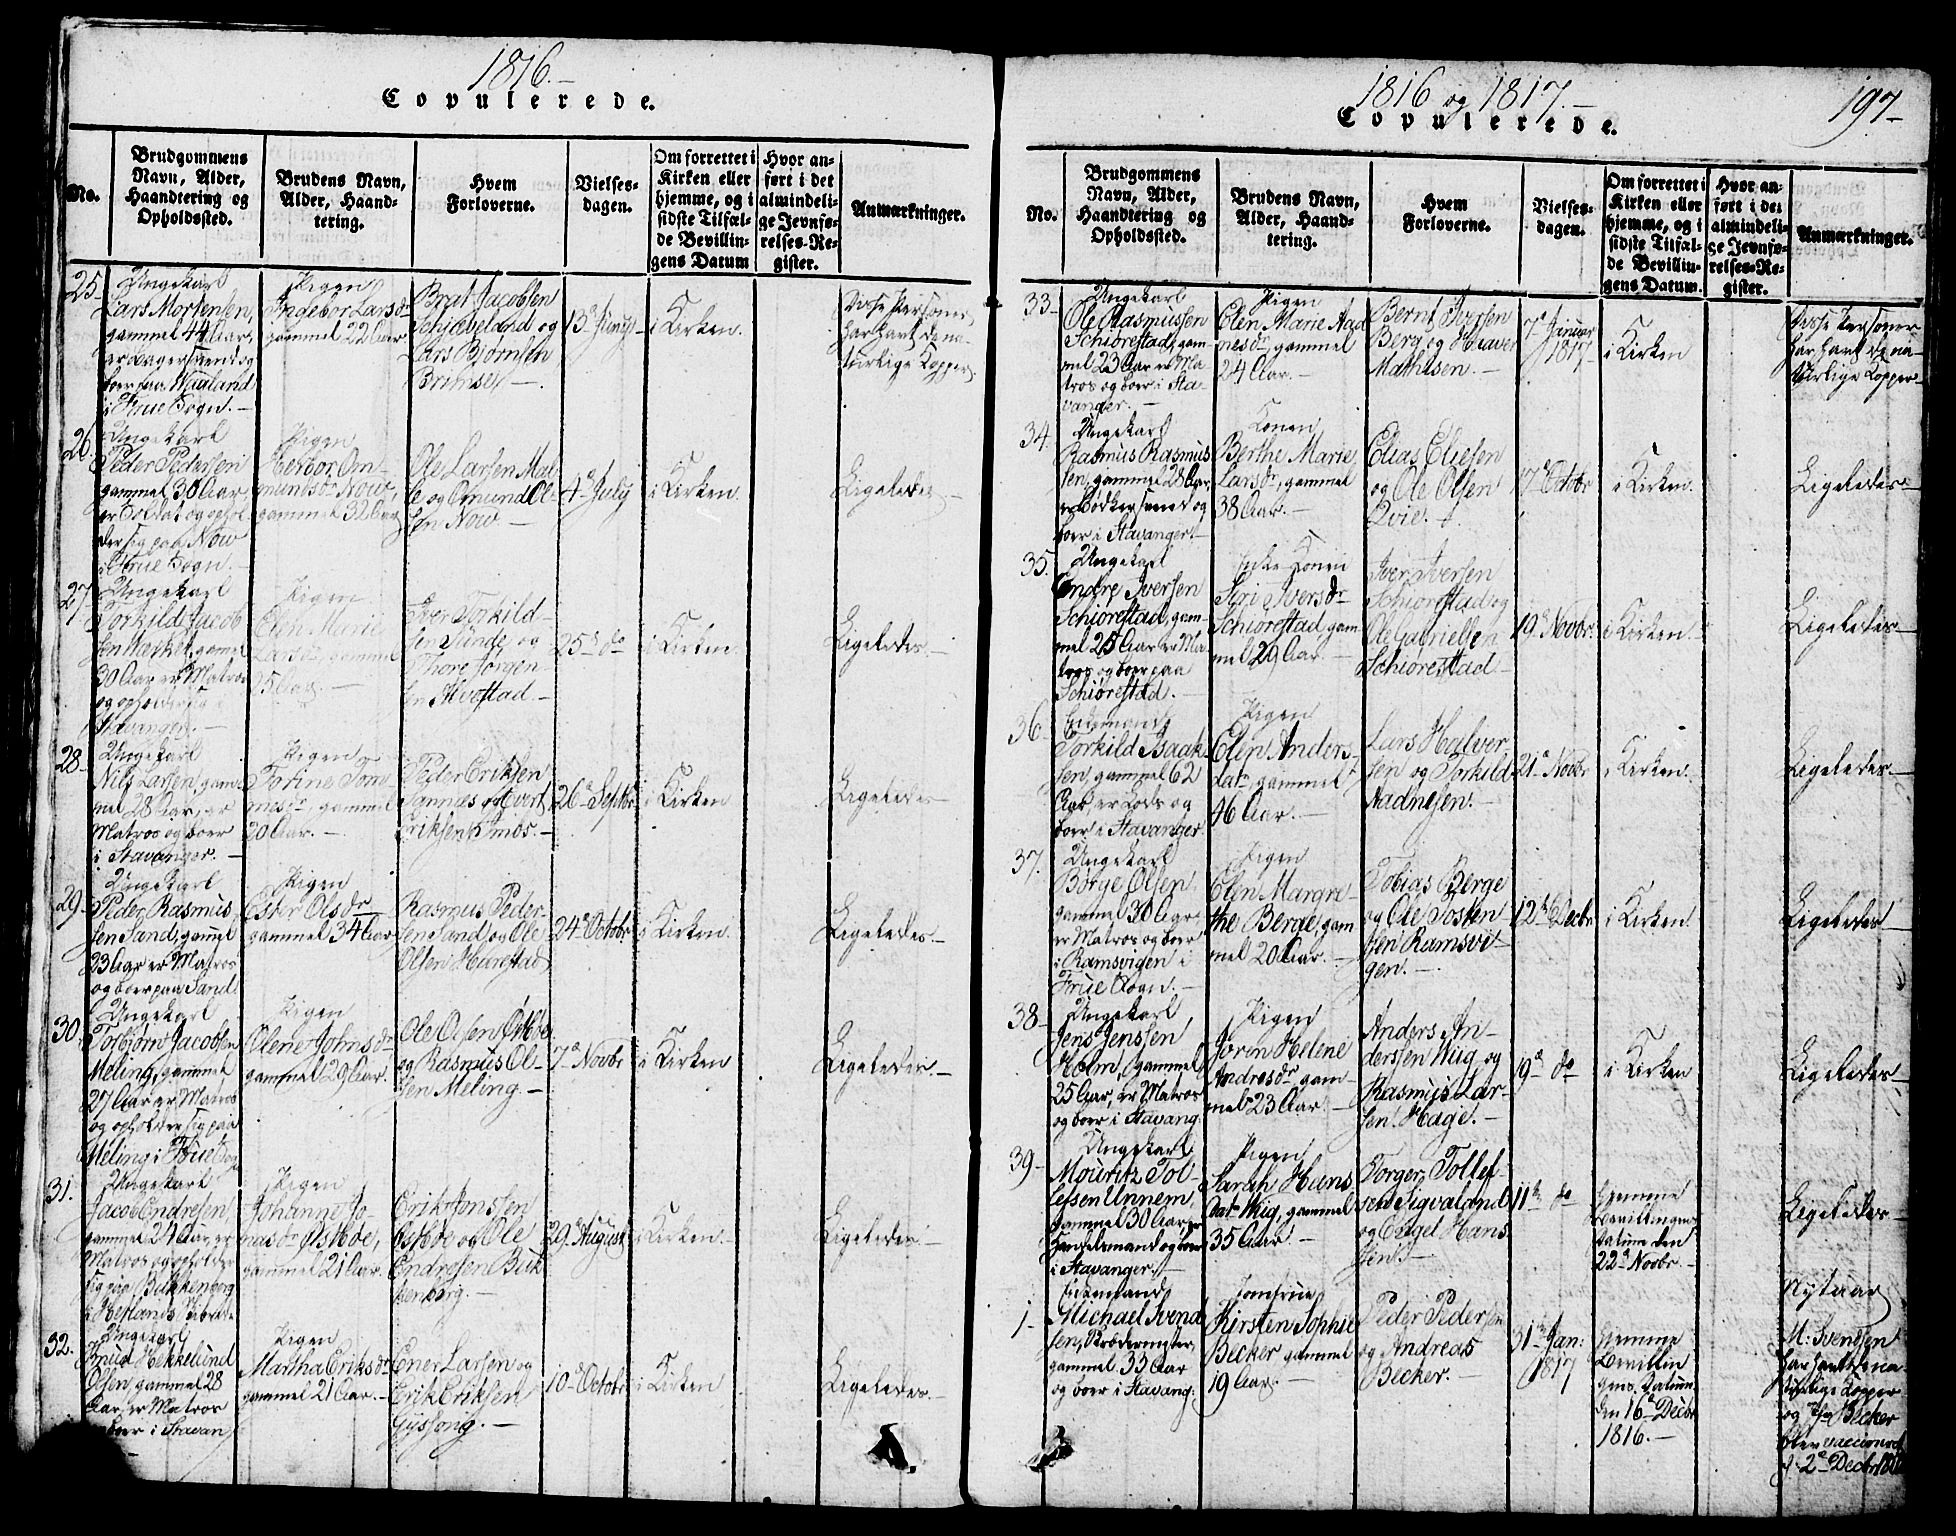 1816.-
Copulerede.
No.
Brudgommens
Navn, Alder,
Haandtering og
Opholdssted.
Brudens Navn,
Alder, Haand-
tering.
Hvem
Forloverne.
Vielses-
dagen.
Om forrettet i
Kirken eller
hjemme, og i
sidste Tilfæl-
de Bevillin-
gens Datum
Hvor an-
ført i det
almindeli-
ge Jevnfø-
relses-Re-
gister.
Anmærkninger.
25
Ungekarl
Lars Mortensen,
gammel 44 Aar,
boer paa Waaland
i Frue Sogn.-
Pigen
Ingebor Larsdr
gammel 22 Aar
Brat Jacobsen
Schjæveland og
Lars Bjørnsen
Brimse.-
13de Juny
i Kirken.
Disse Personer
har havt de na-
turlige Kopper
26
Ungekarl
Peder Pedersen
gammel 30 Aar,
er Soldat og ophol-
der sig paa Now
i Frue Sogn.-
Pigen
Herbor Om-
mundsdr Now,
gammel 32 Aar
Ole Larsen Mal-
le og Omund Ol-
sen Now-
4de July
i Kirken.
Ligeledes-
27
Ungekarl
Torkild Jacob
sen Mærket, gamel
30 Aar er Matros
og opholder sig i
Stavanger.-
Pigen
Elen Marie
Larsdr, gammel
25 Aar.-
Iver Torkild-
sen Sunde og
Thore Jørgen
sen Alvestad-
25de do
i Kirken.
Ligeledes.-
28
Ungekarl
Nils Larsen, gam-
mel 28 Aar, er
Matros og boer
i Stavanger.-
Pigen
Torine Tom
mesdr, gammel
20 Aar.-
Peder Eriksen
Sannæs og Evert
Eriksen
26de Septbr
i Kirken
Ligeledes-
29
Ungekarl
Peder Rasmus
sen Sand, gamel
23 Aar er Matros
og boer paa Sand
Pigen
Ester Olsdr
gammel 34 Aar
Rasmus Peder-
sen Sand og Ole
Olsen Harestad
24de Octobr
i Kirken.
Ligeledes.-
30
Ungekarl
Torbjørn Jacobsen
Meling, gammel
27 Aar er Matros
og opholder sig paa
Meling i Frue Sogn
Pigen
Olene Johnsdr
gammel 29 Aar.
Ole Olsen
og Rasmus Ol-
sen Meling-
7de Novbr
i Kirken
Ligeledes.-
31.
Ungekarl
Jacob Endresen,
gammel 24 Aar, er
Matros og opholder
sig paa Bakkenberg
i Hetlands
Pigen
Johanne Jo-
nasdr Østbøe,
gammel 21 Aar.
Erik Jonssen
Østbøe og Ole
Endresen Bak
kenberg.-
29de August
i Kirken.-
Ligeledes.
32.
Ungekarl
Knud Hekkelund
Olsen, gammel 28
Aar, er Matros
boer i Stavan
Pigen
Martha Eriksdr
gammel 21 Aar.-
Ener Larsen og
Erik Eriksen
10de Octobr
i Kirken
Ligeledes.-
1816 og 1817.-
197-
Copulerede.
No.
Brudgommens
Navn, Alder,
Haandtering og
Opholdssted.
Brudens Navn,
Alder, Haand-
tering.
Hvem
Forloverne.
Vielses-
dagen.
Om forrettet i
Kirken eller
hjemme, og i
sidste Tilfæl-
de Bevillin-
gens Datum.
Hvor an-
ført i det
almindeli-
ge Jevnfø-
relses-Re-
gister.
Anmærkninger.
33.
Ungekarl
Ole Rasmussen
Schiørestad, gam-
mel 23 Aar er Ma-
tros og boer i Sta-
vanger.-
Pigen
Elen Marie Aad
nesdr, gammel
24 Aar.-
Bernt Iversen
Berg og Halver
Mathisen.-
7de Januar
1817-
i Kirken
Disse Personer
har havt de na-
turlige Kopper-
34.
Ungekarl
Rasmus Rasmus
sen, gammel 28 Aar,
er Bødkersvend og
boer i Stavanger.-
Konen
Berthe Marie
Larsdr, gammel
38 Aar.-
Elias Eliesen
og Ole Olsen
Qvie.
17de Octobr
i Kirken.
Ligeledes-
35.
Ungekarl
Endre Iversen
Schiørestad, gam-
mel 25 Aar er Ma-
tros og boer paa
Schiørestad.
Enke Konen
Siri Iversdr
Schiørestad, gam
mel 29 Aar.-
Iver Iversen
Schiørestad og
Ole Gabrielsen
Schiørestad-
19de Novbr.
i Kirken.-
Ligeledes-
36
Enkemand
Torkild Isaak-
sen, gammel 62
Aar, er Lods og
boer i Stavanger
Pigen
Elen Anders-
datr gammel
46 Aar.-
Lars Halver-
sen og Torkild
Aadnesen.-
21de Novbr
i Kirken.
Ligeledes-
37.
Ungekarl
Børge Olsen,
gammel 30 Aar
er Matros og boer
i Ramsvigen i
Frue Sogn.-
Pigen
Elen Margre-
the Berge, gam
mel 20 Aar.-
Tobias Berge
og Ole Tosten
sen Ramsvi-
gen.-
12te Decbr
i Kirken.
Ligeledes-
38-
Ungekarl
Jens Jenssen
Holm, gammel
25 Aar, er Matros
og boer i Stavang.
Pigen
Joren Helene
Andrasdr gam-
mel 23 Aar.-
Anders An-
derssen Wiig og
Rasmus Lar-
sen Hage.-
19de do
i Kirken
Ligeledes-
39-
Ungekarl
Mouritz Tol-
lefsen Unnem,
gammel 30 Aar er
Handelsmand og boer
i Stavanger.-
Pigen
Sarah Hans
datr Wiig, gammel
35 Aar.-
Torger Tollef-
sen Sigvaland
og Eigel Hans
sen.-
11te do
Hjemme
Bevillingens
Datum den
22de Novbr.-
Ligeledes-
Nytaar
1-
Enkemand
Michael Svend
sen,
gammel 33 Aar
og boer i Stavang:
Jomfrue
Kirsten Sophie
Becker gammel
19 Aar.-
Peder Pedersen
og Andreas
Becker.-
31te Jan:
1817
Hjemme
Bevillin
gens Datum
den 16de Decbr
1816.-
M: Svendsen
har havt de na-
turlige Kopper
og Jfr Becker
blev vaccineret
d. 2de Decbr